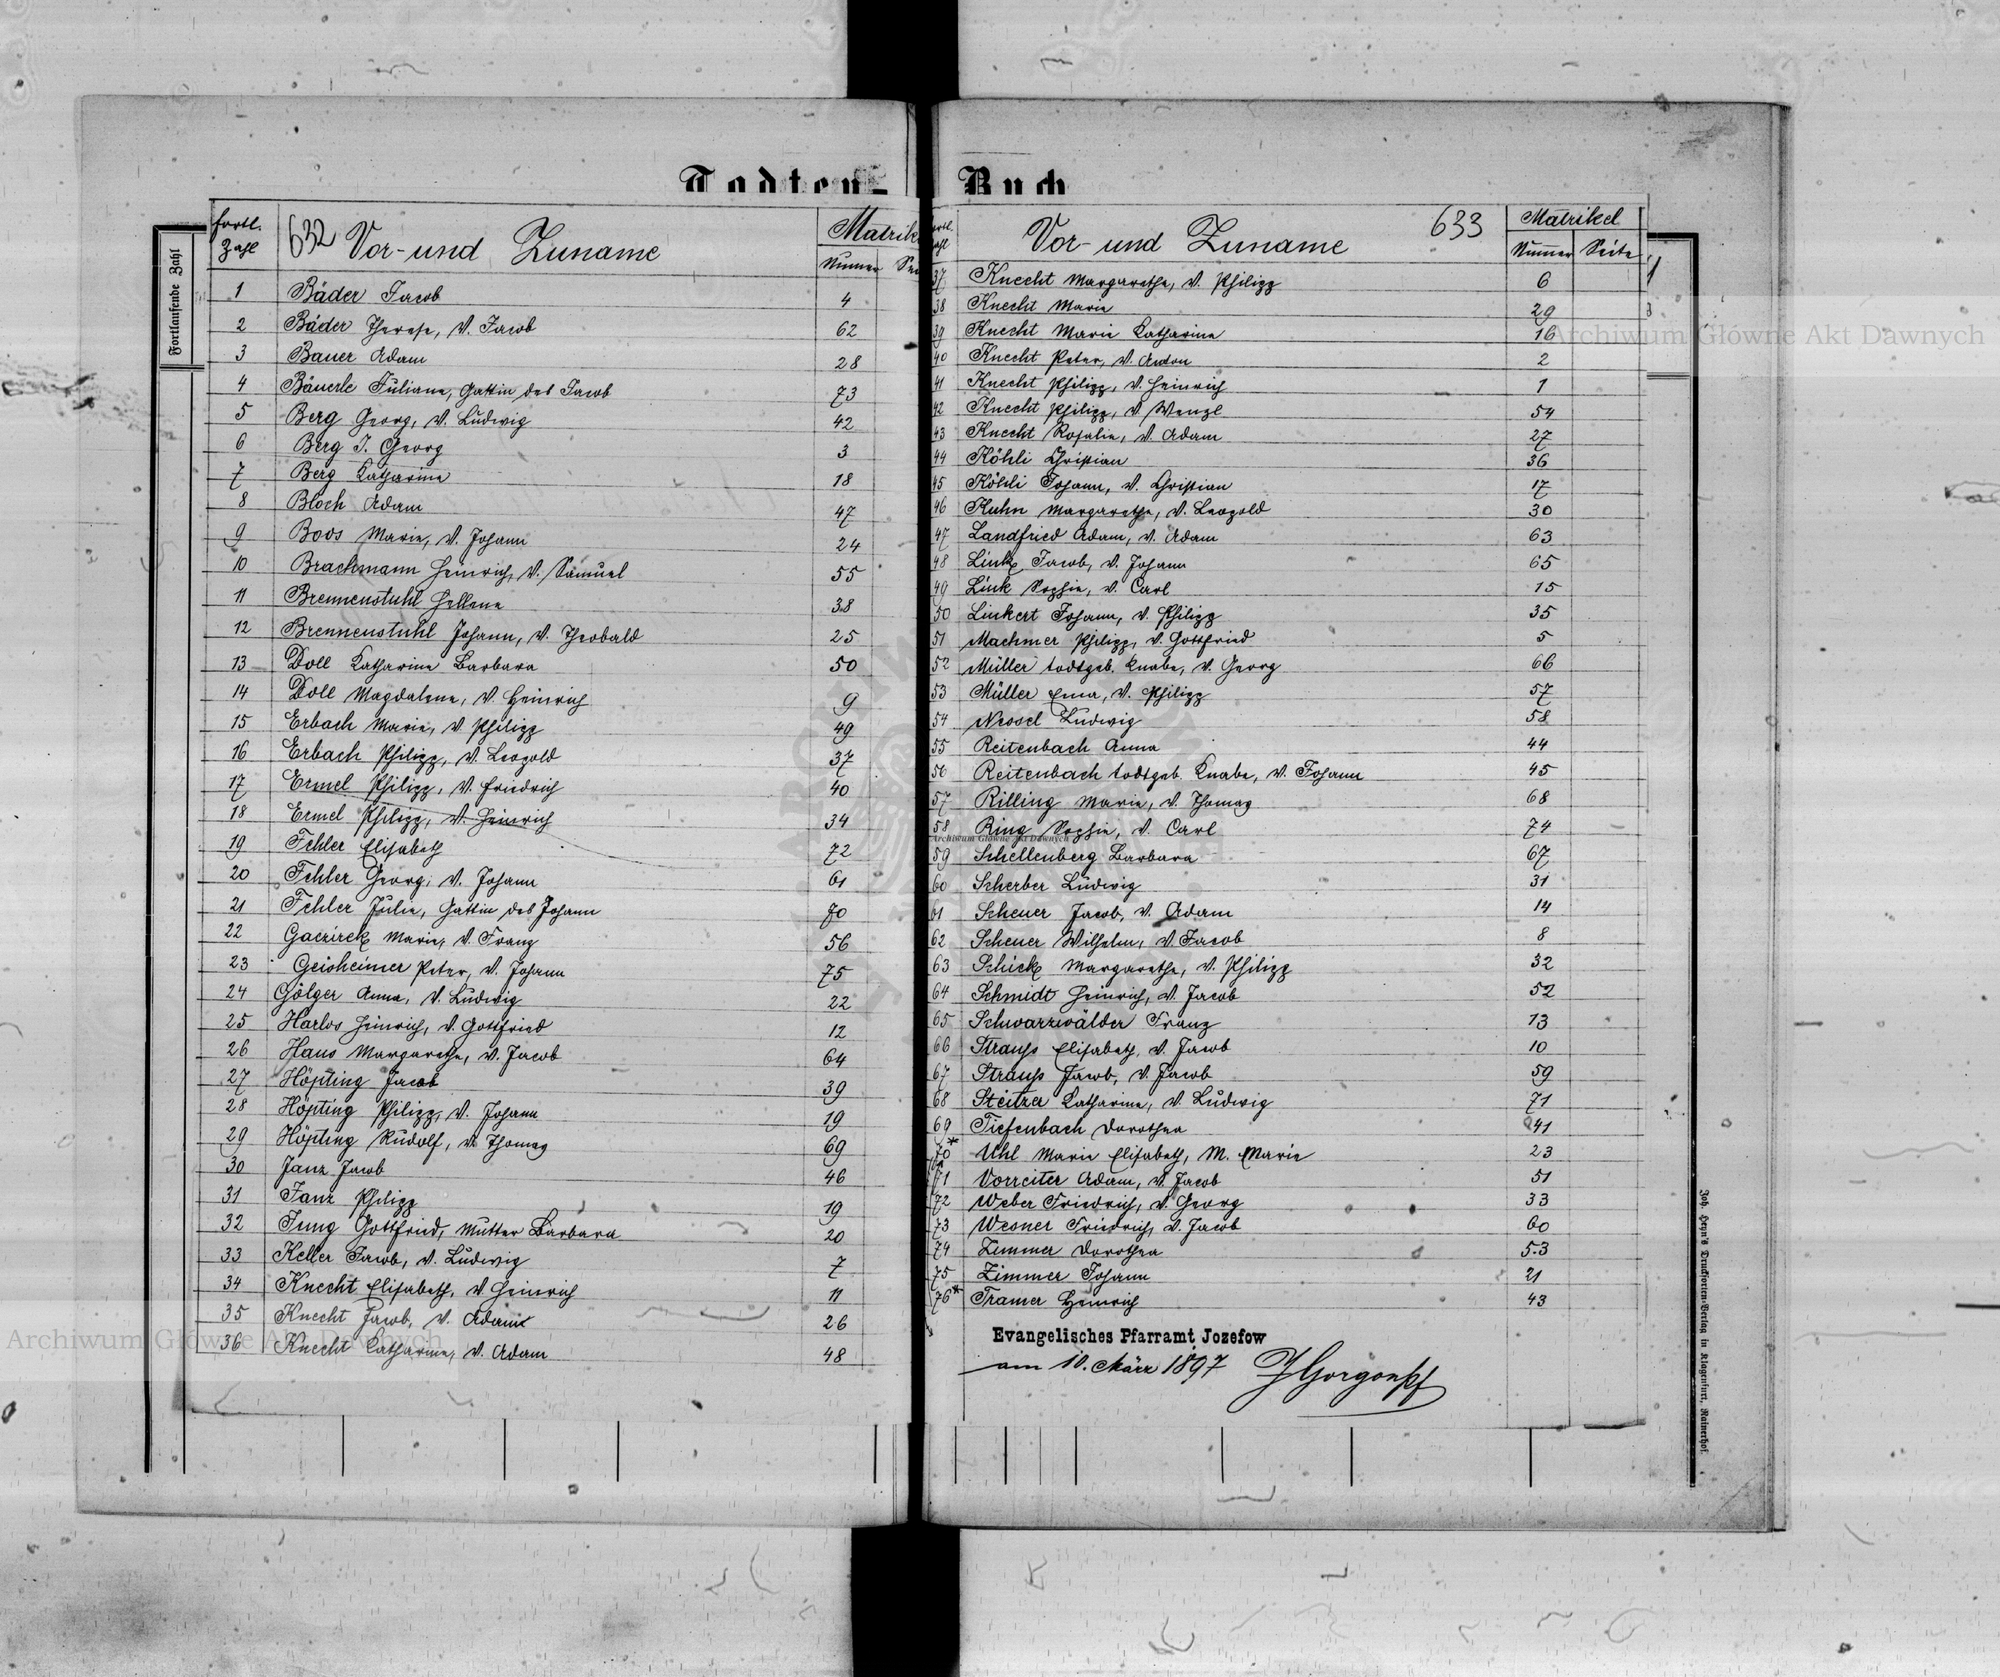 Todten-
fortl. Zahl 632 Vor- und Zuname Matrikel
Nummer
Fortlaufende Zahl
1 Bäder Jacob 4
2 Bäder Therese, V. Jacob 62
3 Bauer Adam 28
4 Bäuerle Juliane, Gattin des Jacob 73
5 Berg Georg, V. Ludwig 42
6 Berg J. Georg 3
7 Berg Katharina 18
8 Bloch Adam 47
9 Boos Marie, V. Johann 24
10 Brachmann Heinrich, V. Samuel 55
11 Brennenstuhl Hellene 38
12 Brennenstuhl Johann, V. Theobald 25
13 Doll Katharine Barbara 50
14 Doll Magdalene, V. Heinrich 9
15 Erbach Marie, V. Philipp 49
16 Erbach Philipp, V. Leopold 37
17 Ermel Philipp, V. Friedrich 40
18 Ermel Philipp, V. Heinrich 34
19 Fehler Elisabeth 72
20 Fehler Georg, V. Johann 61
21 Fehler Julie, Gattin des Johann 70
22 Marie, V. Franz 56
23 Geisheimer Peter, V. Johann 75
24 Gölger Anna, V. Ludwig 22
25 Harlos Heinrich, V. Gottfried 12
26 Haus Margarethe, V. Jacob 64
27 Höpting Jacob 39
28 Höpting Philipp, V. Johann 19
29 Höpting Rudolf, V. Thomas 69
30 Janz Jacob 46
31 Janz Philipp 19
32 Jung Gottfried, Mutter Barbara 20
33 Keller Jacob, V. Ludwig 7
34 Knecht Elisabeth, V. Heinrich 11
35 Knecht Jacob, V. Adam 26
36 Knecht Catharine, V. Adam 48
Buch
Vor- und Zuname 633 Matrikel
Nummer Seite
37 Knecht Margarethe, V. Philipp 6
38 Knecht Marie 29
39 Knecht Marie Katharine 16
40 Knecht Peter, V. Anton 2
41 Knecht Philipp, V. Heinrich 1
42 Knecht Philipp, V. Wenzl 54
43 Knecht Rosalie, V. Adam 27
44 Köhli Christian 36
45 Köhli Johann, V. Christian 17
46 Kuhn Margarethe, V. Leopold 30
47 Landfried Adam, V. Adam 63
48 Link Jacob, V. Johann 65
49 Link Sophie, V. Carl 15
50 Linkert Johann, V. Philipp 35
51 Machmer Philipp, V. Gottfried 5
52 Müller todtgeb. Knabe, V. Georg 66
53 Müller Ema, V. Philipp 57
54 Nessel Ludwig 58
55 Reitenbach Anna 44
56 Reitenbach todtgeb. Knabe, V. Johann 45
57 Rilling Marie, V. Thomas 68
58 Ring Sophie, V. Carl 74
59 Schellenberg Barbara 67
60 Scherber Ludwig 31
61 Scheuer Jacob, V. Adam 14
62 Scheuer Wilhelm, V. Jacob 8
63 Schick Margarethe, V. Philipp 32
64 Schmidt Heinrich, V. Jacob 52
65 Schwarzwälder Franz 13
66 Strauss Elisabeth, V. Jacob 10
67 Strauss Jacob, V. Jacob 59
68 Steitzer Katharine, V. Ludwig 71
69 Tiefenbach Dorothea 41
70* Uhl Marie Elisabeth, M. Marie 23
71 Vorreiter Adam, V. Jacob 51
72 Weber Friedrich, V. Georg 33
73 Wesner Friedrich, V. Jacob 60
74 Zimmer Dorothea 53
75 Zimmer Johann 21
76* Tramer Heinrich 43
Evangelisches Pfarramt Jozefow
am 10. März 1897
Joh. Heyn's Drucksorten-Verlag in Klagenfurt, Rainerhof.
Archiwum Główne Akt Dawnych
Archiwum Główne Akt Dawnych
Archiwum Główne Akt Dawnych